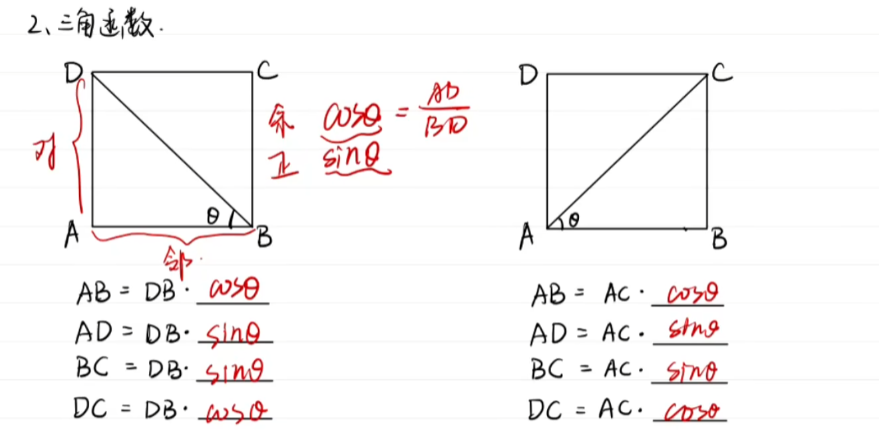 2、三角函数.
D C
对
A B
θ
邻
余 cosθ = AD/BD
正 sinθ
AB = DB· cosθ
AD = DB· sinθ
BC = DB· sinθ
DC = DB· cosθ
D C
A B
θ
AB = AC· cosθ
AD = AC· sinθ
BC = AC· sinθ
DC = AC· cosθ